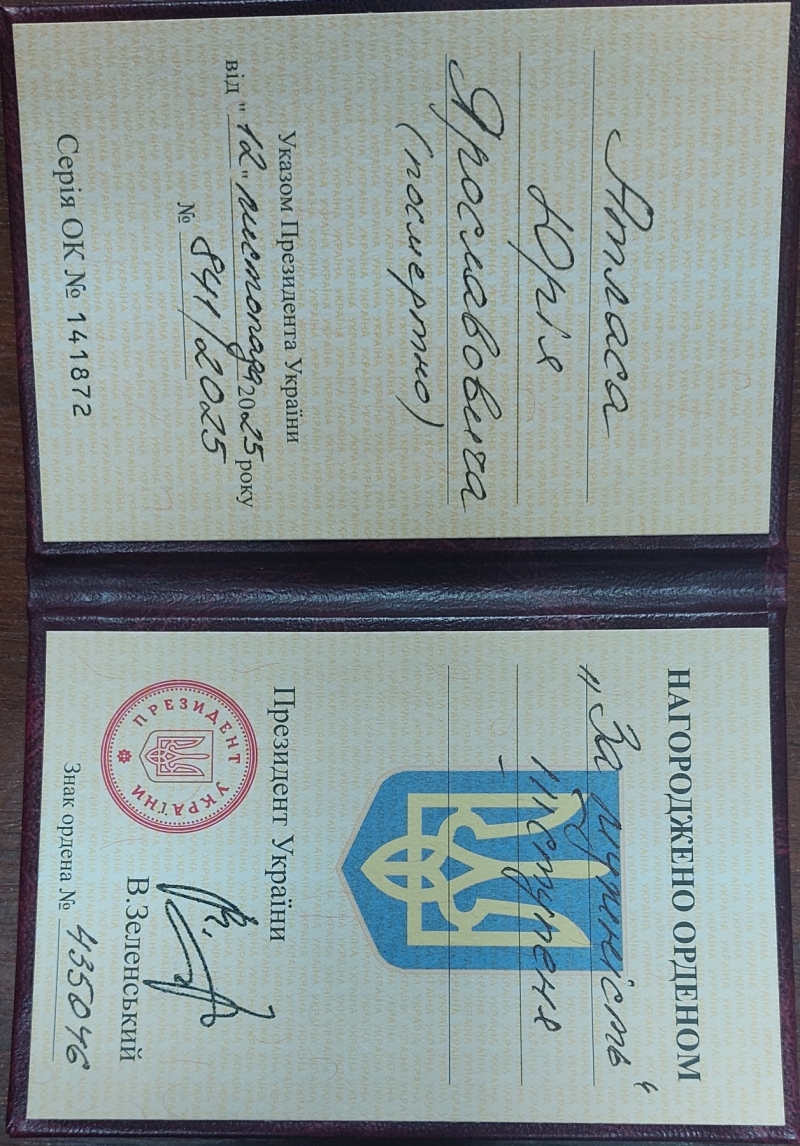 Атласа
Юрія
Ярославовича
(посмертно)
Указом Президента України
від "12" листопада 2025 року
№ 841/2025
Серія ОК № 141872
НАГОРОДЖЕНО ОРДЕНОМ
„За мужність“
ІІІ ступеня
Президент України
В.Зеленський
ПРЕЗИДЕНТ УКРАЇНИ
Знак ордена № 435046